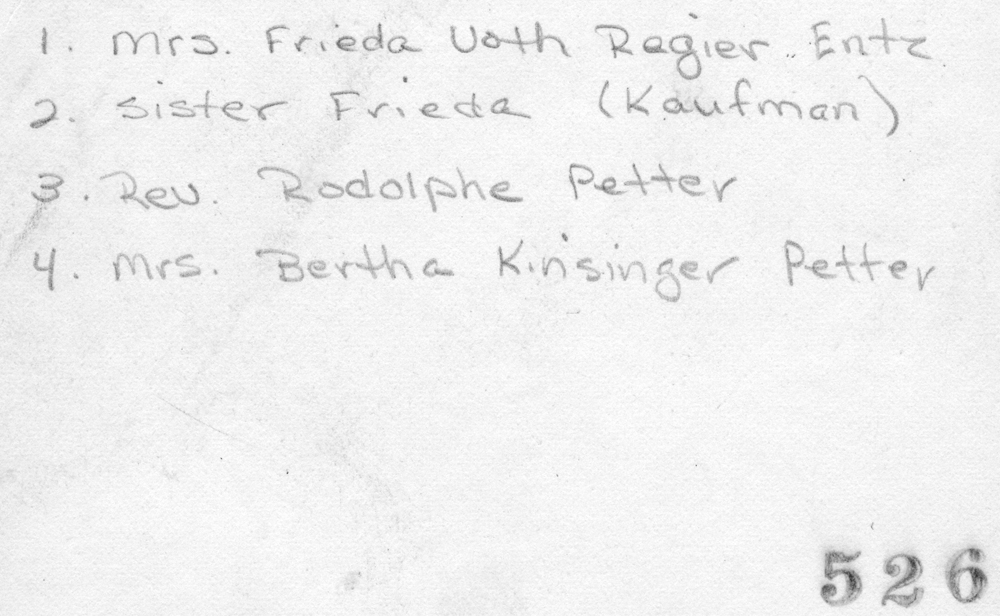 1. Mrs. Frieda Voth Regier Entz
2. Sister Frieda (Kaufman)
3. Rev. Rodolphe Petter
4. Mrs. Bertha Kinsinger Petter
526